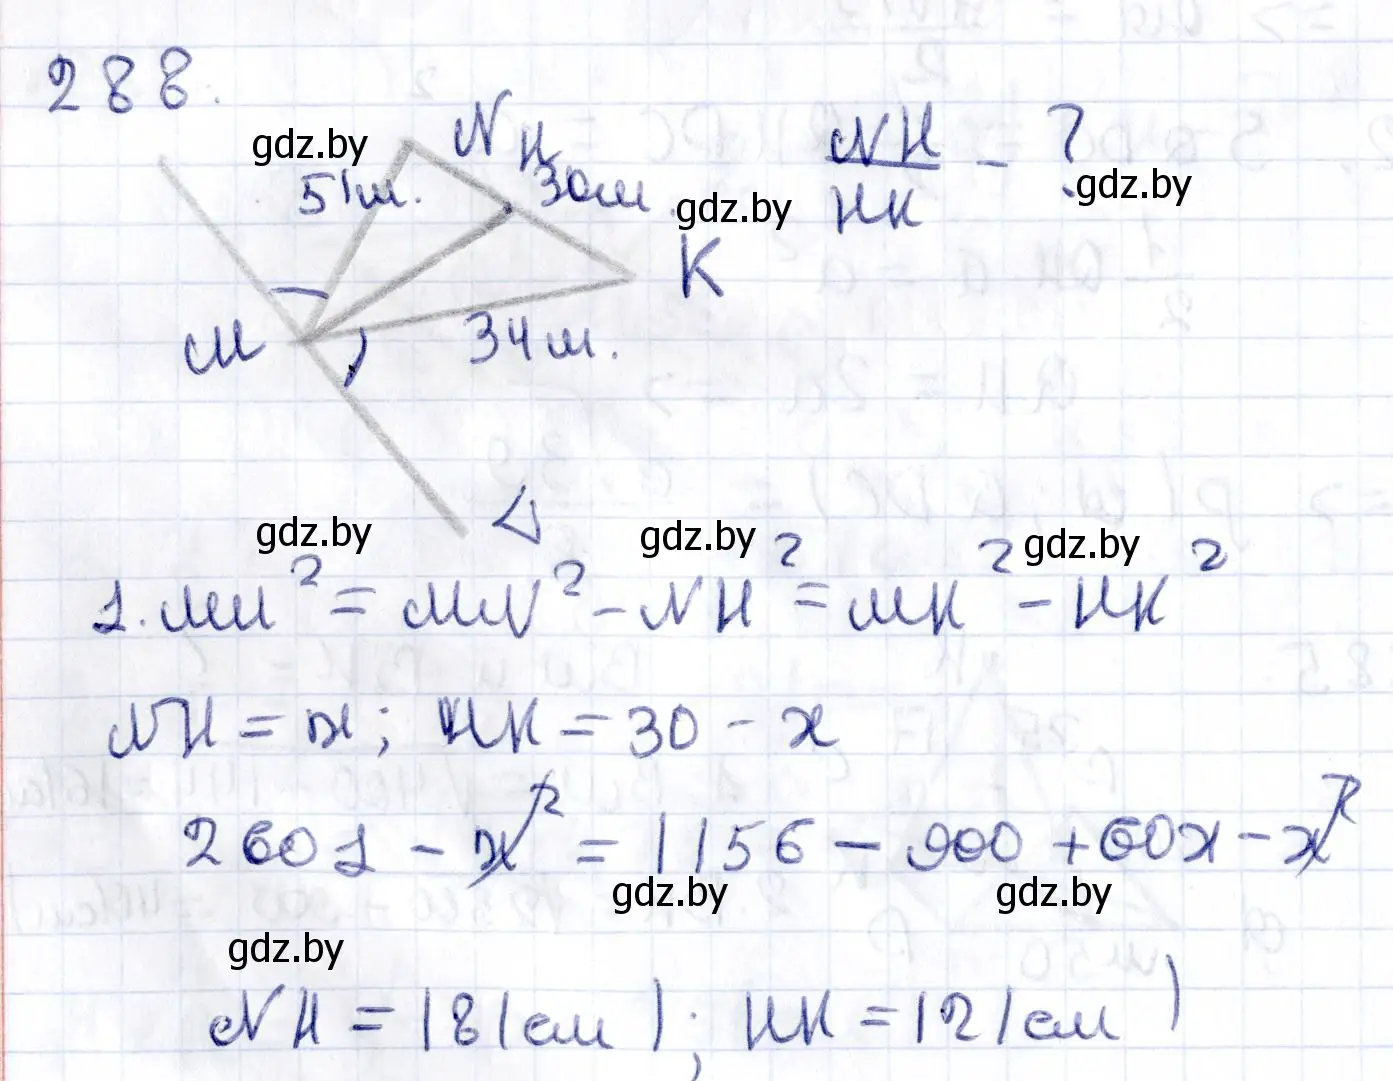 288.
gdz.by
N
H
NH/HK - ?
51 м.
30 м.
gdz.by
gdz.by
K
M
34 м.
gdz.by
gdz.by
gdz.by
1. MH² = MN² - NH² = MK² - HK²
NH = x; HK = 30 - x
2601 - x² = 1156 - 900 + 60x - x²
gdz.by
gdz.by
gdz.by
NH = 18 (см); HK = 12 (см)